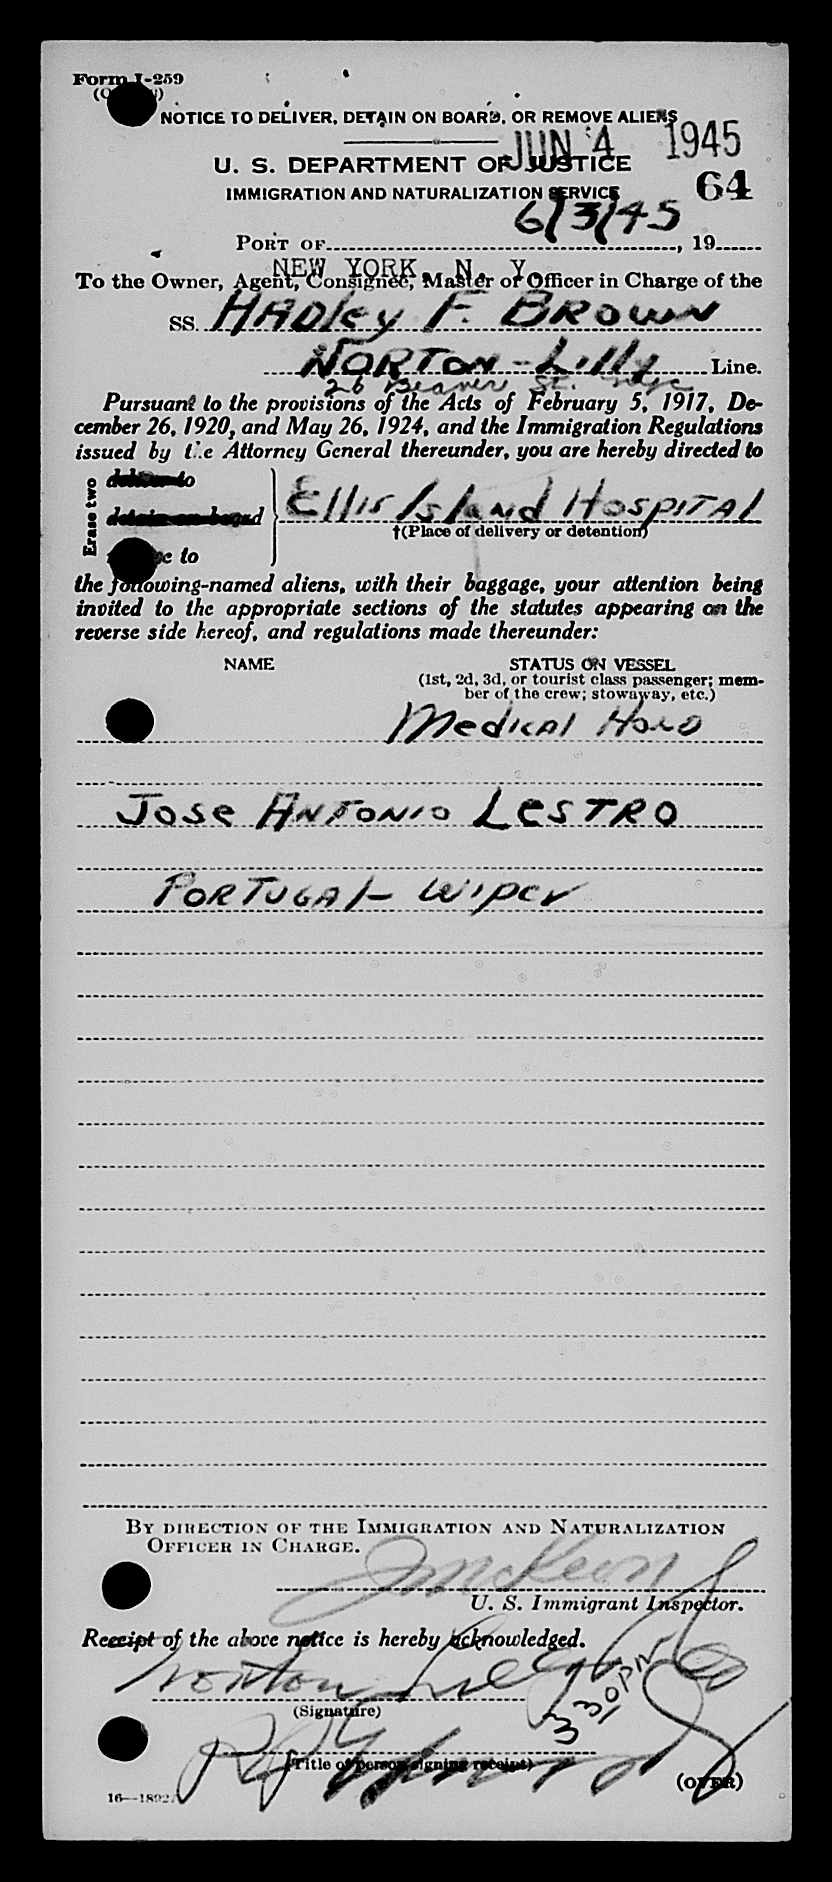 Form I-259
NOTICE TO DELIVER, DETAIN ON BOARD, OR REMOVE ALIENS
JUN 4 1945
U. S. DEPARTMENT OF JUSTICE
IMMIGRATION AND NATURALIZATION SERVICE
64
6/3/45
PORT OF , 19
NEW YORK, N. Y.
To the Owner, Agent, Consignee, Master or Officer in Charge of the
SS. HADley F. BROWN
NORTON-Lilly Line.
26 Beaver St.
Pursuant to the provisions of the Acts of February 5, 1917, De-
cember 26, 1920, and May 26, 1924, and the Immigration Regulations
issued by the Attorney General thereunder, you are hereby directed to
Erase two
deliver to
detain on board
Ellis Island HOSPITAl
†(Place of delivery or detention)
to
the following-named aliens, with their baggage, your attention being
invited to the appropriate sections of the statutes appearing on the
reverse side hereof, and regulations made thereunder:
NAME STATUS ON VESSEL
(1st, 2d, 3d, or tourist class passenger; mem-
ber of the crew; stowaway, etc.)
Medical Hold
Jose ANTONIO LESTRO
PORTUGAl- WIPer
BY DIRECTION OF THE IMMIGRATION AND NATURALIZATION
OFFICER IN CHARGE.
U. S. Immigrant Inspector.
Receipt of the above notice is hereby acknowledged.
Norton Lilly & Co
(Signature)
330 PM
(Title of person signing receipt)
(OVER)